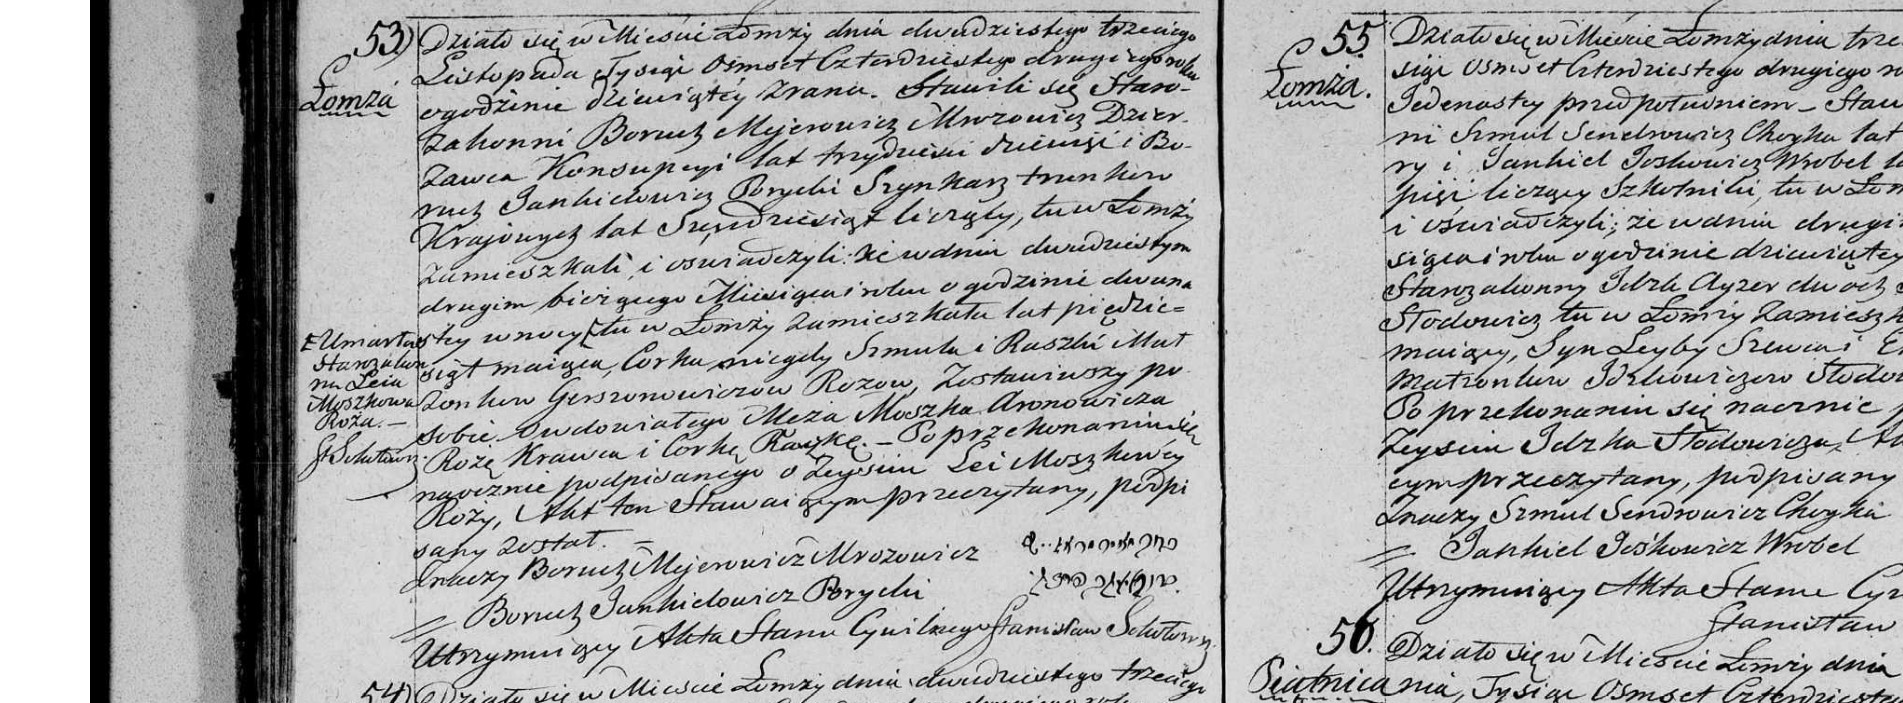 53)
Łomża
Działo się w Mieście Łomży dnia dwudziestego trzeciego
Listopada Tysiąc Ośmset Czterdziestego drugiego roku
o godzinie dziewiątey zrana. Stawili się Staro-
zakonni Boruch Mejerowicz Mrozowicz Dzier-
żawca Konsupcyi lat trzydzieści dziewięć i Bo-
ruch Jankielowicz Borycki Szynkarz trunków
Krajowych lat Sześćdziesiąt liczący, tu w Łomży
zamieszkali, i oświadczyli: że w dniu dwudziestym
drugim bieżącego Miesiąca i roku o godzinie dwuna
stey w nocy [tu w Łomży zamieszkała lat pięćdzie-
siąt maiąca, Corka niegdy Szmula i Raszki Mał
żonków Gerszonowiczow Rozow, Zostawiwszy po
sobie owdowiałego Męża Moszka Aronowicza
Rożę Krawca i Corkę Raszkę. – Po przekonaniu się
naocznie podpisanego o Zeyściu Lei Moszkowey
Roży, Akt ten Stawaiącym przeczytany, podpi
sany został. –
[Umarła
Starozakon
na Leia
Moszkowa
Roża. –
Znaczy Boruch Mejerowicz Mrozowicz
〃 Boruch Jankielowicz Borycki
Utrzymuiący Akta Stanu Cywilnego Stanisław
54) Działo się w Mieście Łomży dnia dwudziestego trzeciego
55.
Łomża.
Działo się w Mieście Łomży dnia trze
siąc Ośmset Czterdziestego drugiego ro
Jedenastey przed południem – Staw
ni Szmul Sendrowicz Choyka lat
ry i Jankiel Joskowicz Wrobel l
pięć liczący Szkolniki, tu w Łom
i oświadczyli; że w dniu drugi
siąca i roku o godzinie dziewiątey
Starozakonny Idzk Ayzer dwoch
Słodowicz tu w Łomży Zamieszk
maiący, Syn Leyby Szewca i
Małżonków Idzkowiczow Słodo
Po przekonaniu się naocznie p
Zeyściu Idzka Słodowicza, Ak
cym przeczytany, podpisany
Znaczy Szmul Sendrowicz Choyka
〃 Jankiel Joskowicz Wrobel
Utrzymuiący Akta Stanu Cyw
Stanisław
56.
Piątnica
Działo się w Mieście Łomży dnia
nia, Tysiąc Ośmset Czterdzieste